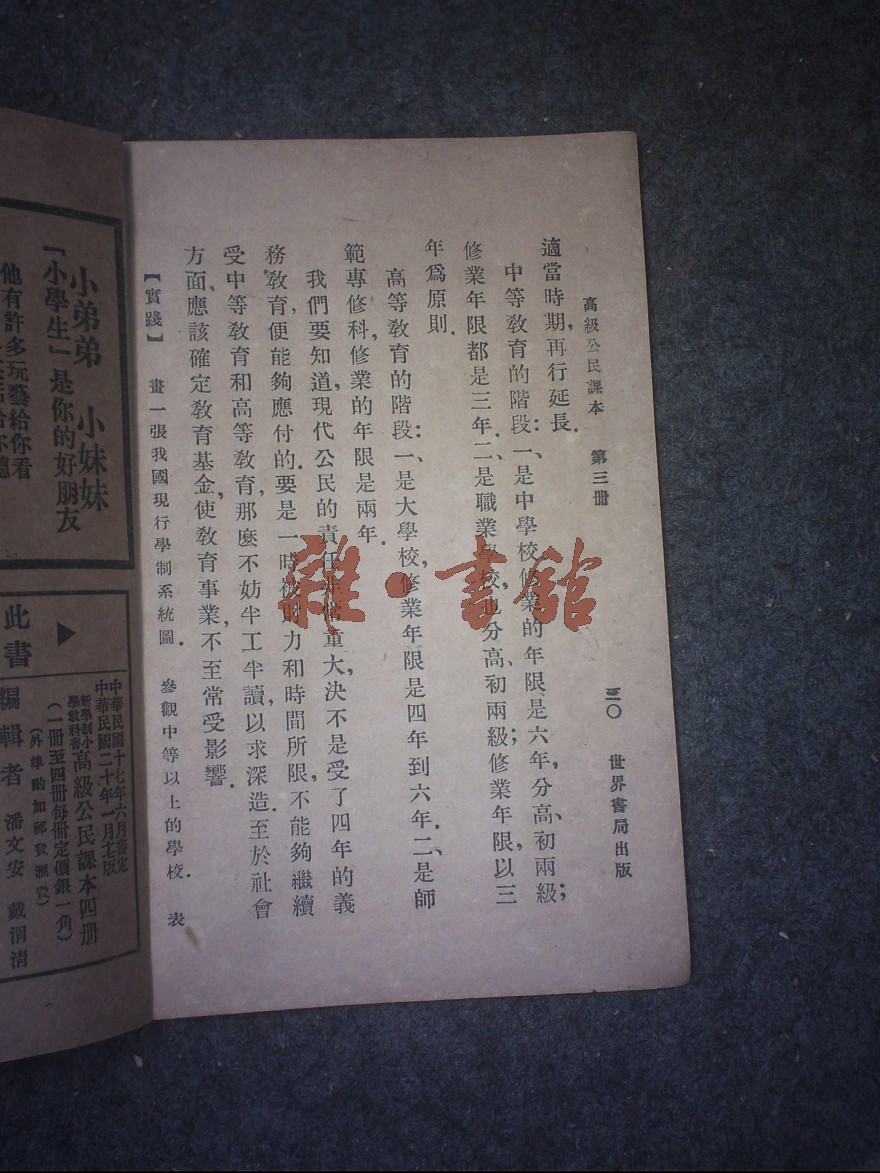 高級公民課本　第三冊　三〇　世界書局出版
適當時期,再行延長.
中等敎育的階段:一、是中學校,修業的年限是六年,分高、初兩級;
修業年限都是三年.二、是職業學校,也分高、初兩級;修業年限,以三
年爲原則.
高等敎育的階段:一、是大學校,修業年限是四年到六年.二、是師
範專修科,修業的年限是兩年.
我們要知道,現代公民的責任非常重大,決不是受了四年的義
務敎育,便能夠應付的.要是一時被財力和時間所限,不能夠繼續
受中等敎育和高等敎育,那麽不妨半工半讀,以求深造.至於社會
方面,應該確定敎育基金,使敎育事業,不至常受影響.
【實踐】　畫一張我國現行學制系統圖.　參觀中等以上的學校.　表
小弟弟　小妹妹
「小學生」是你的好朋友
他有許多玩藝給你看
中華民國十七年六月審定
中華民國二十年一月七版
新學制小學敎科書高級公民課本四冊
(一冊至四冊每冊定價銀一角)
(外埠酌加郵費滙費)
此書編輯者　潘文安　戴渭清
雜·書館